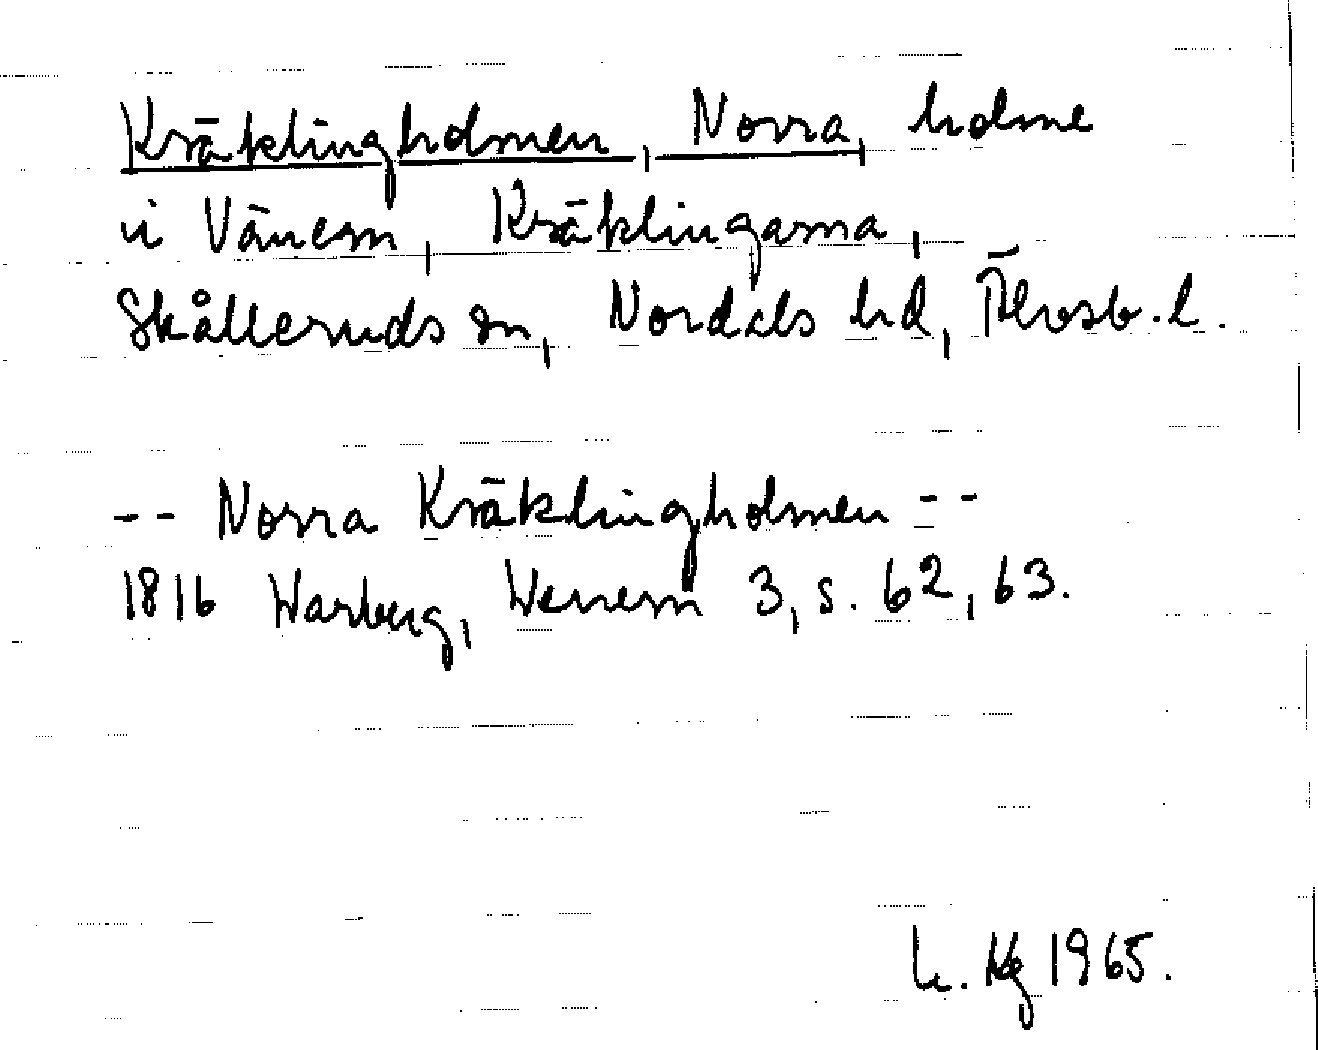 Kräklingholmen, Norra, holme
i Vänern, Kräklingarna,
Skålleruds sn, Nordals hd, Älvsb. l.
-- Norra Kräklingholmen --
1816 Warberg, Wenern 3, s. 62, 63.
1965.